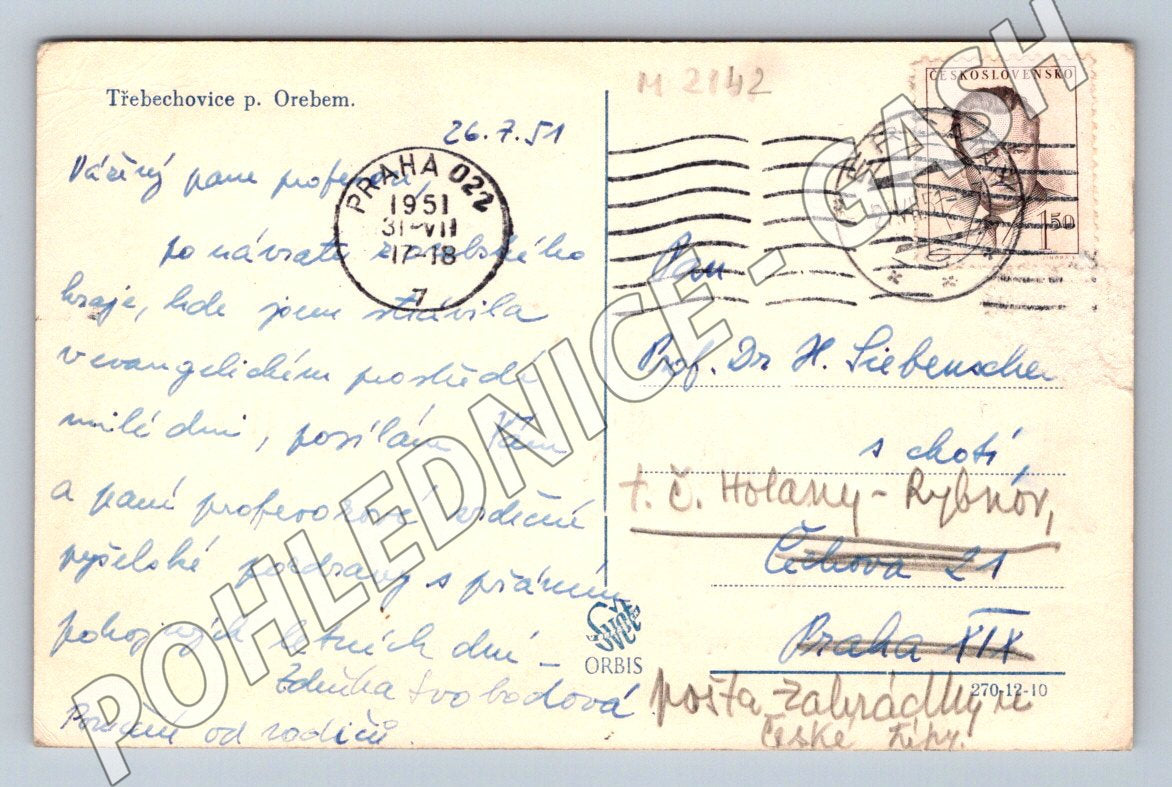 Třebechovice p. Orebem.
26.7.51
Vážený pane profesore,
po návratu z
kraje, kde jsem strávila
v evangelickém prostředí
milé dni, posílám Vám
a paní profesorové srdečné
pozdravy s přáním
pokojných letních dní –
Zdeňka Svobodová
Poručení od rodičů.
M 2142
ČESKOSLOVENSKO
1.50
PRAHA 022
1951
31-VII
17-18
7
Pan
Prof. Dr H. Siebenschein
s chotí,
t. č. Holany - Rybnov,
Čechova 21
Praha XIX
pošta Zahrádky u
České Lípy.
Svět
ORBIS
270-12-10
POHLEDNICE - GASH